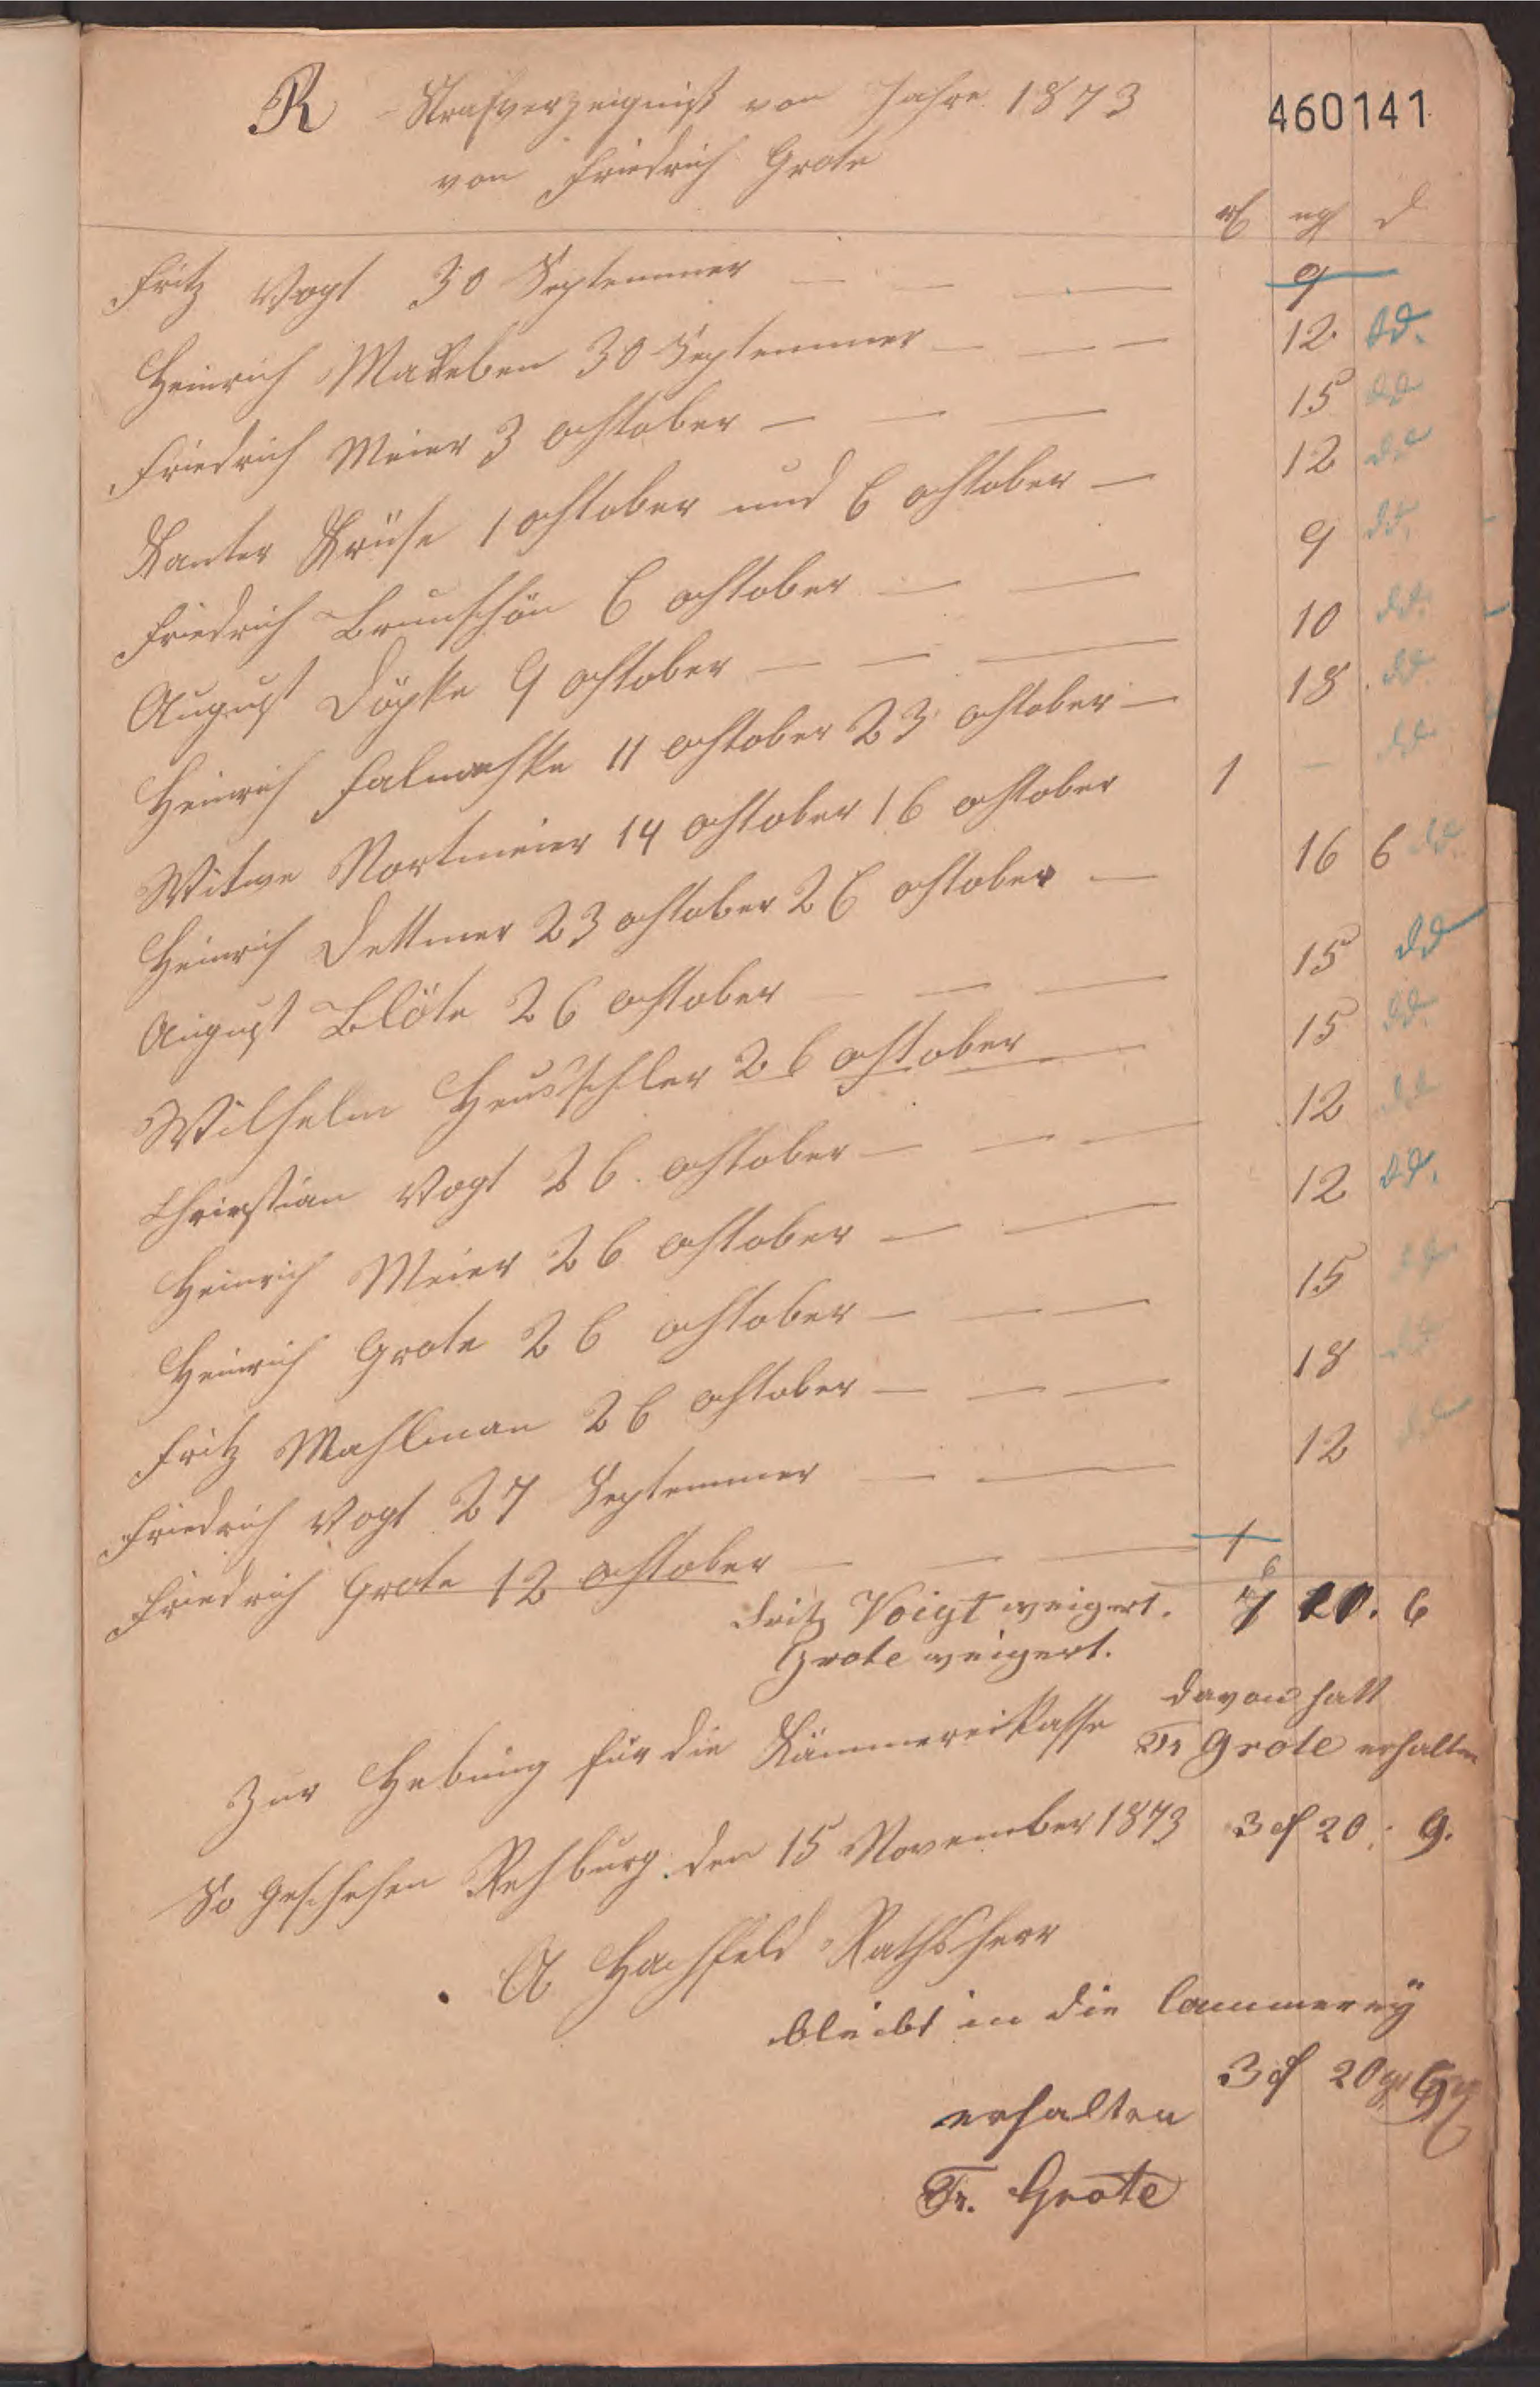 R Strafverzeigniß von Jahre 1873
460141
von Friedrich Grote
rℓ ngr d
Fritz Vogt 30 Septemmer — — — 9
Heinrich Mareben 30 Septemmer — — — 12 dd.
Friedrich Meier 3 October — — — 15 dd
Kanter Krüse 1 October und 6 October — 12 dd
Friedrich Brunschön 6 October — — 9 dd.
August Döpke 9 October — — — 10 dd.
Heinrich Falmeschke 11 October 23 October — 18 dd
Witwe Nortmeier 14 October 16 October 1 — dd
Heinrich Dettmer 23 October 26 October — 16 6 dd.
August Blöte 26 October — — — 15 dd
Wilhelm 26 October — 15 dd
Christian Vogt 26. October — — — 12 dd
Heinrich Meier 26 October — — 12 dd.
Heinrich Grote 26 October — — — 15 dd
Fritz Mahlman 26 October — — — 18 dd
Friedrich Vogt 27 Septemmer — — 12 dd
Friedrich Grote 12 October — — — 1
Fritz Voigt weigert. 6. 6
Grote weigert.
davon hatt
Zur Hebung für die Kämmereikasse Fr Grote erhalten
So Geschehen Rehburg den 15 November 1873 3 rℓ 20 : 9.
A Hachfeld Rathsherr
bleibt in die Cammerey
3 rℓ 20 gr
erhalten
Fr. Grote